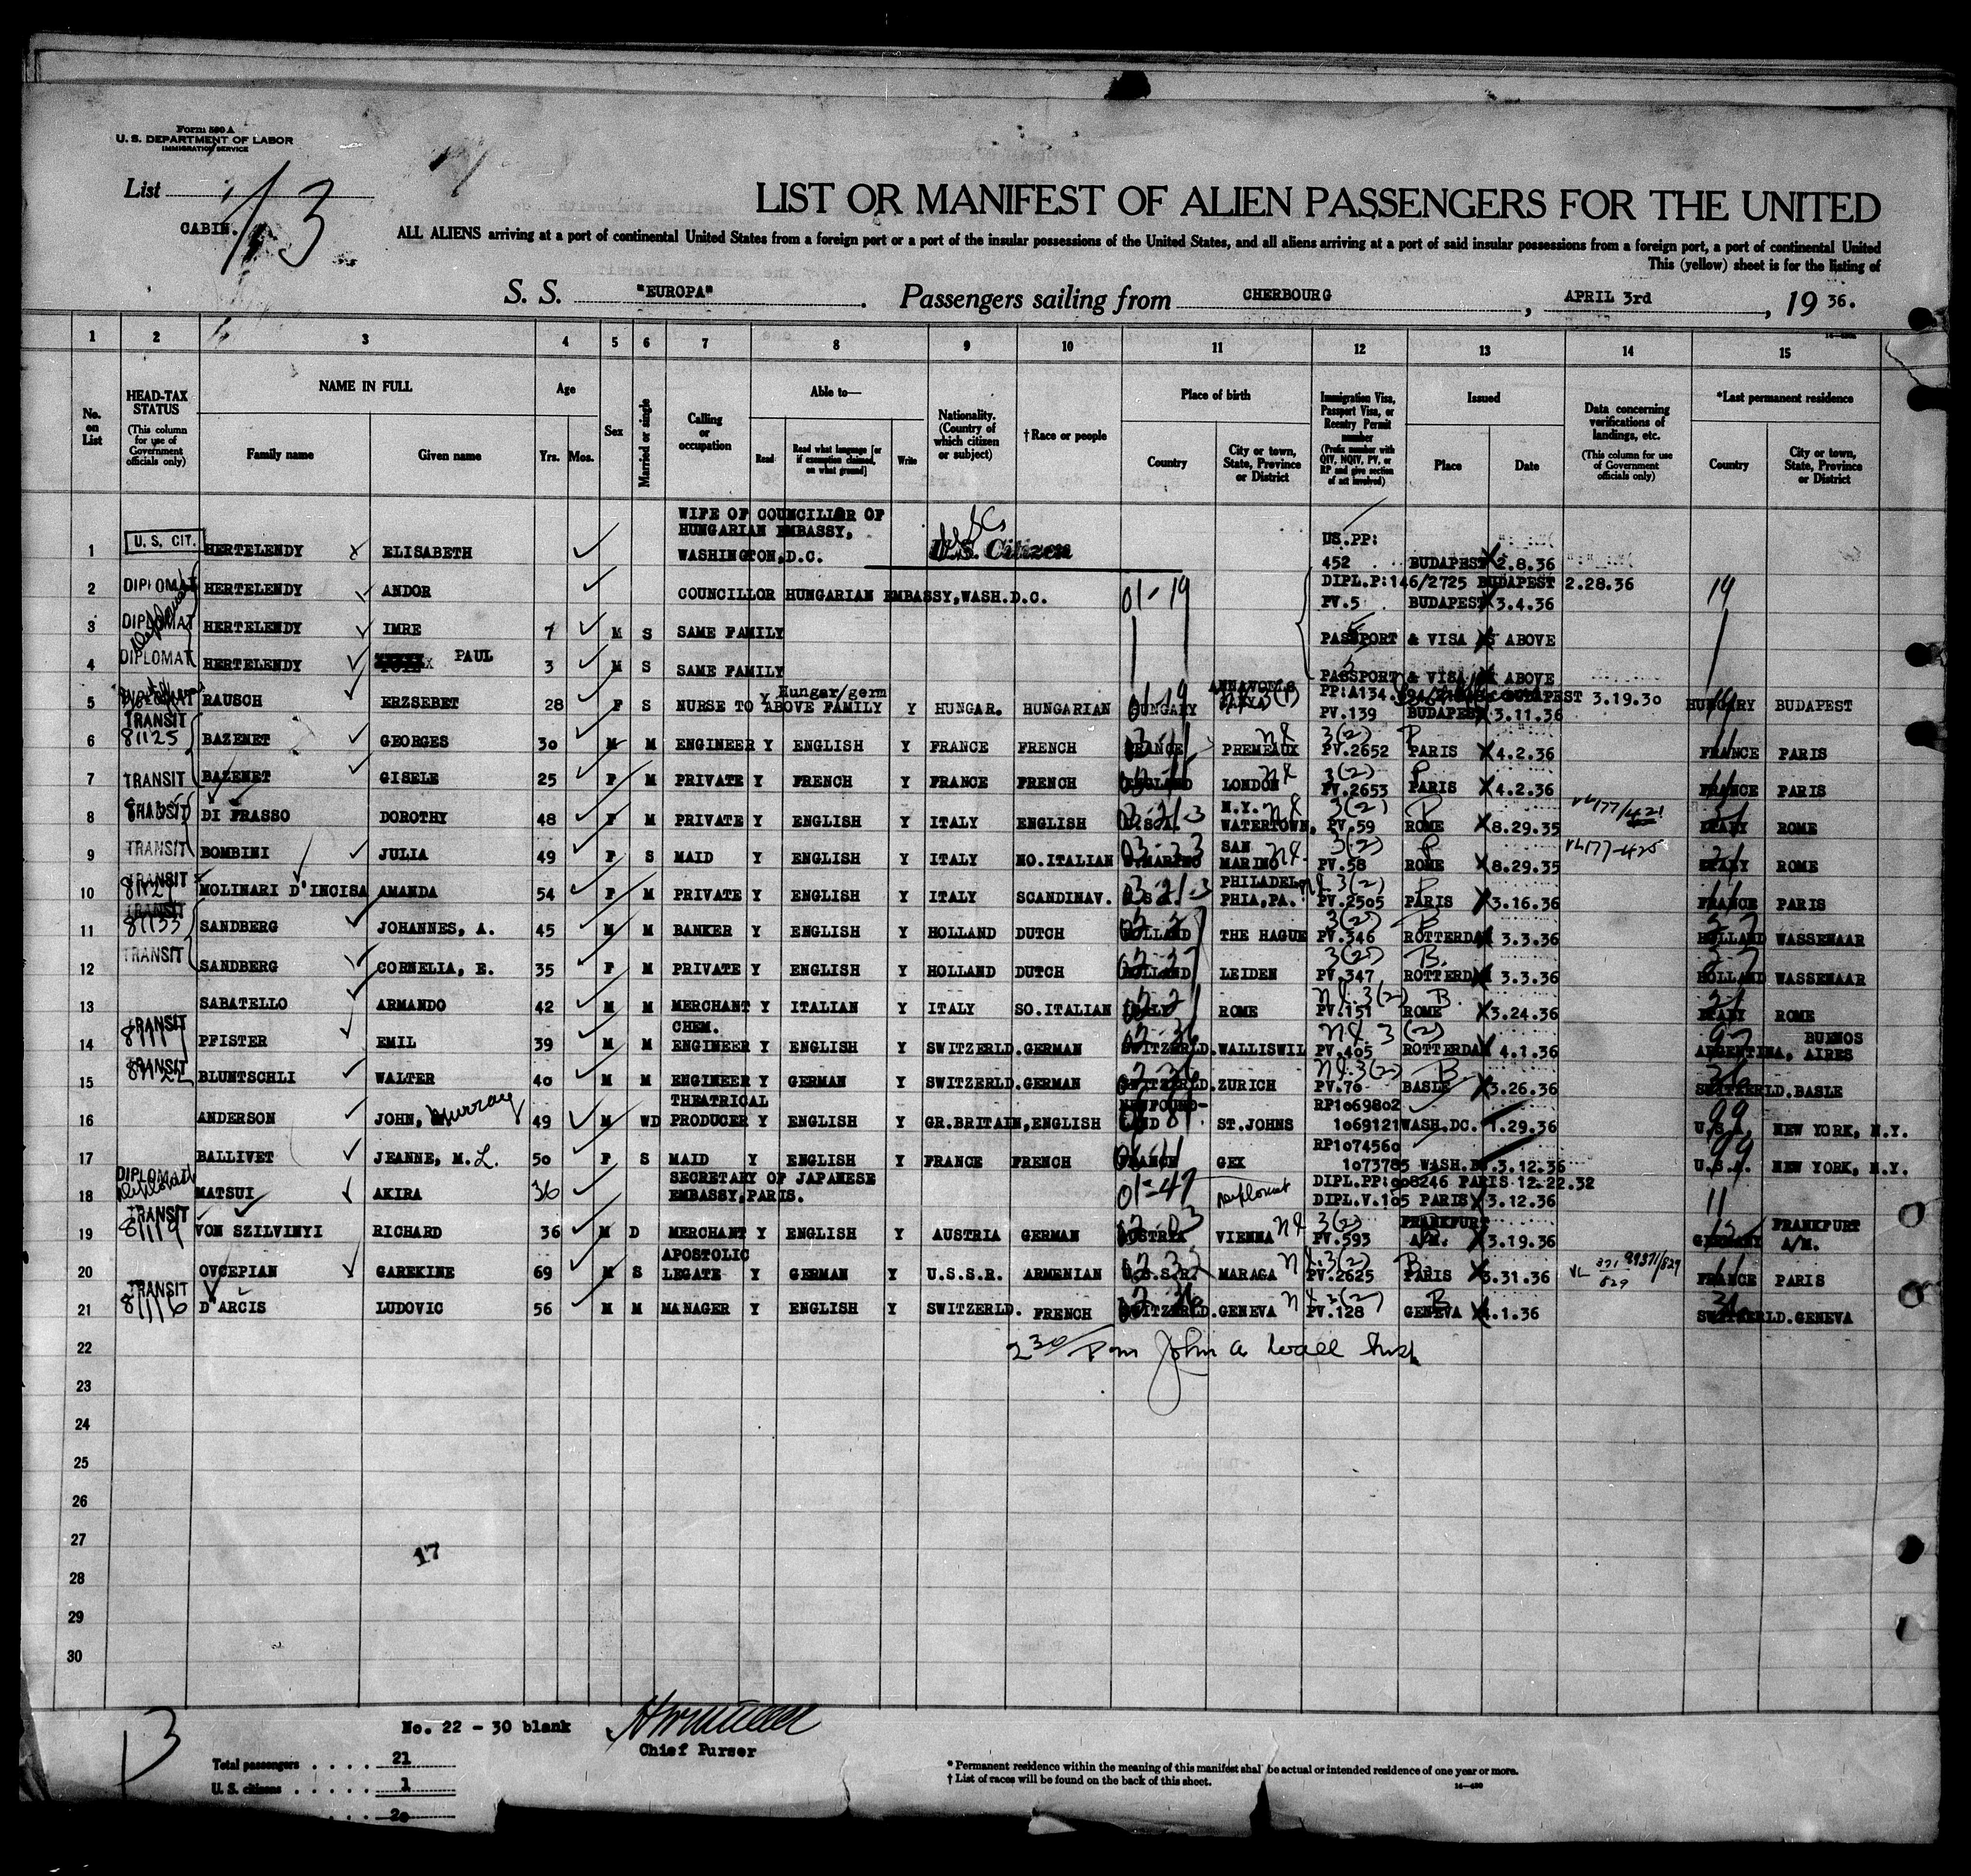 Form 500 A
U. S. DEPARTMENT OF LABOR
IMMIGRATION SERVICE
List 13
CABIN.
LIST OR MANIFEST OF ALIEN PASSENGERS FOR THE UNITED
ALL ALIENS arriving at a port of continental United States from a foreign port or a port of the insular possessions of the United States, and all aliens arriving at a port of said insular possessions from a foreign port, a port of continental United
This (yellow) sheet is for the listing of
S. S. "EUROPA". Passengers sailing from CHERBOURG, APRIL 3rd, 1936.
1 2 3 4 5 6 7 8 9 10 11 12 13 14 15
No. on List
HEAD-TAX STATUS (This column for use of Government officials only)
NAME IN FULL Family name Given name
Age Yrs. Mos.
Sex
Married or single
Calling or occupation
Able to— Read Read what language [or if exemption claimed, on what ground] Write
Nationality. (Country of which citizen or subject)
†Race or people
Place of birth Country City or town, State, Province or District
Immigration Visa, Passport Visa, or Reentry Permit number (Prefix number with QIV, NQIV, PV, or RP and give section of act involved)
Issued Place Date
Data concerning verifications of landings, etc. (This column for use of Government officials only)
*Last permanent residence Country City or town, State, Province or District
1 U. S. CIT. HERTELENDY ELISABETH WIFE OF COUNCILLOR OF HUNGARIAN EMBASSY, WASHINGTON,D.C. U.S. Citizen US.PP: 452 BUDAPEST 2.8.36
2 DIPLOMAT HERTELENDY ANDOR COUNCILLOR HUNGARIAN EMBASSY,WASH.D.C. 01-19 DIPL.P:146/2725 BUDAPEST 2.28.36 PV.5 BUDAPEST 3.4.36 19
3 DIPLOMAT HERTELENDY IMRE 7 M S SAME FAMILY PASSPORT & VISA AS ABOVE
4 DIPLOMAT HERTELENDY PAUL 3 M S SAME FAMILY PASSPORT & VISA AS ABOVE
5 RAUSCH ERZSEBET 28 F S NURSE TO ABOVE FAMILY Y Hungar/germ Y HUNGAR. HUNGARIAN HUNGARY 01-19 PP:A134 BUDAPEST 3.19.30 PV.139 BUDAPEST 3.11.36 HUNGARY BUDAPEST
6 TRANSIT 81125 BAZENET GEORGES 30 M M ENGINEER Y ENGLISH Y FRANCE FRENCH FRANCE PREMEAUX 3(2) PV.2652 PARIS 4.2.36 FRANCE PARIS
7 TRANSIT BAZENET GISELE 25 F M PRIVATE Y FRENCH Y FRANCE FRENCH ENGLAND LONDON 3(2) PV.2653 PARIS 4.2.36 FRANCE PARIS
8 TRANSIT DI FRASSO DOROTHY 48 F M PRIVATE Y ENGLISH Y ITALY ENGLISH U.S.A. N.Y. WATERTOWN, 3(2) PV.59 ROME 8.29.35 ITALY ROME
9 TRANSIT BOMBINI JULIA 49 F S MAID Y ENGLISH Y ITALY NO.ITALIAN S.MARINO SAN MARINO 3(2) PV.58 ROME 8.29.35 ITALY ROME
10 TRANSIT MOLINARI D'INCISA AMANDA 54 F M PRIVATE Y ENGLISH Y ITALY SCANDINAV. U.S.A. PHILADELPHIA,PA. 3(2) PV.2505 PARIS 3.16.36 FRANCE PARIS
11 TRANSIT 81133 SANDBERG JOHANNES, A. 45 M M BANKER Y ENGLISH Y HOLLAND DUTCH HOLLAND THE HAGUE 3(2) PV.346 ROTTERDAM 3.3.36 HOLLAND WASSENAAR
12 TRANSIT SANDBERG CORNELIA, E. 35 F M PRIVATE Y ENGLISH Y HOLLAND DUTCH HOLLAND LEIDEN 3(2) PV.347 ROTTERDAM 3.3.36 HOLLAND WASSENAAR
13 SABATELLO ARMANDO 42 M M MERCHANT Y ITALIAN Y ITALY SO.ITALIAN ITALY ROME 3(2) PV.151 ROME 3.24.36 ITALY ROME
14 TRANSIT PFISTER EMIL 39 M M CHEM. ENGINEER Y ENGLISH Y SWITZERLD. GERMAN SWITZERLD. WALLISWIL 3(2) PV.405 ROTTERDAM 4.1.36 ARGENTINA, BUENOS AIRES
15 TRANSIT BLUNTSCHLI WALTER 40 M M ENGINEER Y GERMAN Y SWITZERLD. GERMAN SWITZERLD. ZURICH 3(2) PV.76 BASLE 3.26.36 SWITZERLD. BASLE
16 ANDERSON JOHN, Murray 49 M WD THEATRICAL PRODUCER Y ENGLISH Y GR.BRITAIN, ENGLISH NEWFOUND-LAND ST.JOHNS RP1069802 1069121 WASH.DC. 1.29.36 U.S.A. NEW YORK, N.Y.
17 BALLIVET JEANNE, M. L. 50 F S MAID Y ENGLISH Y FRANCE FRENCH FRANCE GEX RP1074560 1073785 WASH.DC. 3.12.36 U.S.A. NEW YORK, N.Y.
18 DIPLOMAT Diplomat MATSUI AKIRA 36 SECRETARY OF JAPANESE EMBASSY,PARIS. 01-47 Diplomat DIPL.PP:908246 PARIS 12-22.32 DIPL.V.105 PARIS 3.12.36 11
19 TRANSIT 81119 VON SZILVINYI RICHARD 36 M D MERCHANT Y ENGLISH Y AUSTRIA GERMAN AUSTRIA VIENNA 3(2) PV.593 FRANKFURT A/M. 3.19.36 GERMANY FRANKFURT A/M.
20 OVCEPIAN GAREKINE 69 M S APOSTOLIC LEGATE Y GERMAN Y U.S.S.R. ARMENIAN U.S.S.R. MARAGA 3(2) PV.2625 PARIS 3.31.36 FRANCE PARIS
21 TRANSIT 81116 D'ARCIS LUDOVIC 56 M M MANAGER Y ENGLISH Y SWITZERLD. FRENCH SWITZERLD. GENEVA 3(2) PV.128 GENEVA 4.1.36 SWITZERLD. GENEVA
22 2 30 Pm John A Wall Insp
23
24
25
26
27
17
28
29
30
13
No. 22 - 30 blank
Chief Purser
Total passengers . . . . 21
U. S. citizens . . . . . 1
20
* Permanent residence within the meaning of this manifest shall be actual or intended residence of one year or more.
† List of races will be found on the back of this sheet.